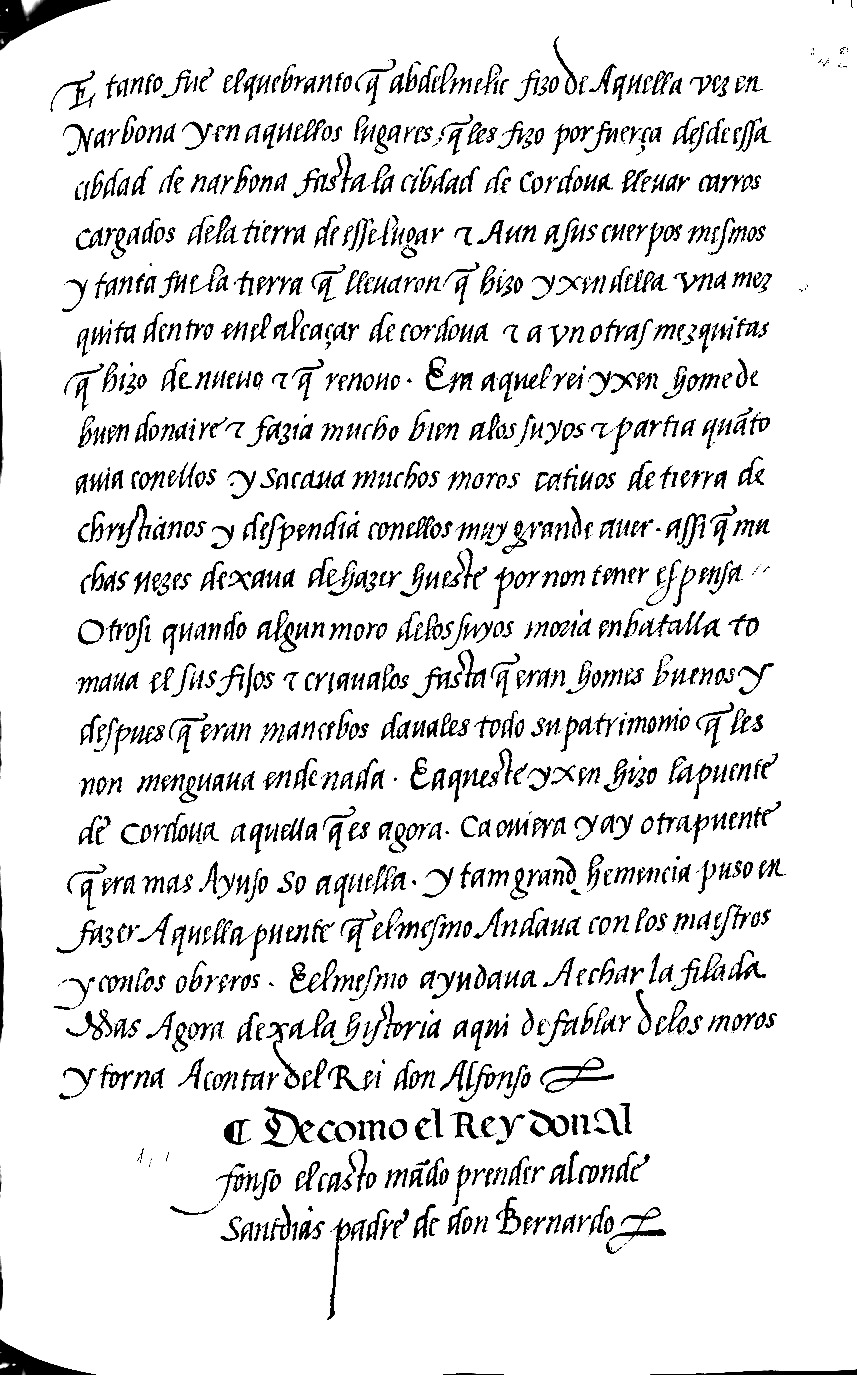 E tanto fue el quebranto q̃ abdelmelic fizo de Aquella vez en
Narbona y en aquellos lugares, q̃ les fizo por fuerça desde essa
cibdad de narbona fasta la cibdad de Cordova llevar carros
cargados dela tierra de esse lugar ⁊ Aun a sus cuerpos mesmos
y tanta fue la tierra q̃ llevaron q̃ hizo yxen della vna mez
quita dentro en el alcaçar de cordova ⁊ a vn otras mezquitas
q̃ hizo de nuevo ⁊ q̃ renovo. Era aquel rei yxen home de
buen donaire ⁊ fazia mucho bien alos suyos ⁊ partia quãto
avia conellos y sacava muchos moros cativos de tierra de
christianos y despendia conellos muy grande aver. assi q̃ mu
chas vezes dexava de hazer hueste por non tener espensa
Otrosi quando algun moro delos suyos moria en batalla to
mava el sus fijos ⁊ criavalos fasta q̃ eran homes buenos y
despues q̃ eran mancebos davales todo su patrimonio q̃ les
non menguava ende nada. E aqueste yxen hizo la puente
de Cordova aquella q̃ es agora. Ca oviera y ay otra puente
q̃ era mas Ayuso so aquella. y tam grand hemencia puso en
fazer Aquella puente q̃ el mesmo Andava con los maestros
y con los obreros. E el mesmo ayudava A echar la filada
Mas Agora dexa la historia aqui de fablar delos moros
y torna A contar del Rei don Alfonso
¶ De como el Rey don Al
fonso el casto mãdo prender al conde
Santdias padre de don Bernardo